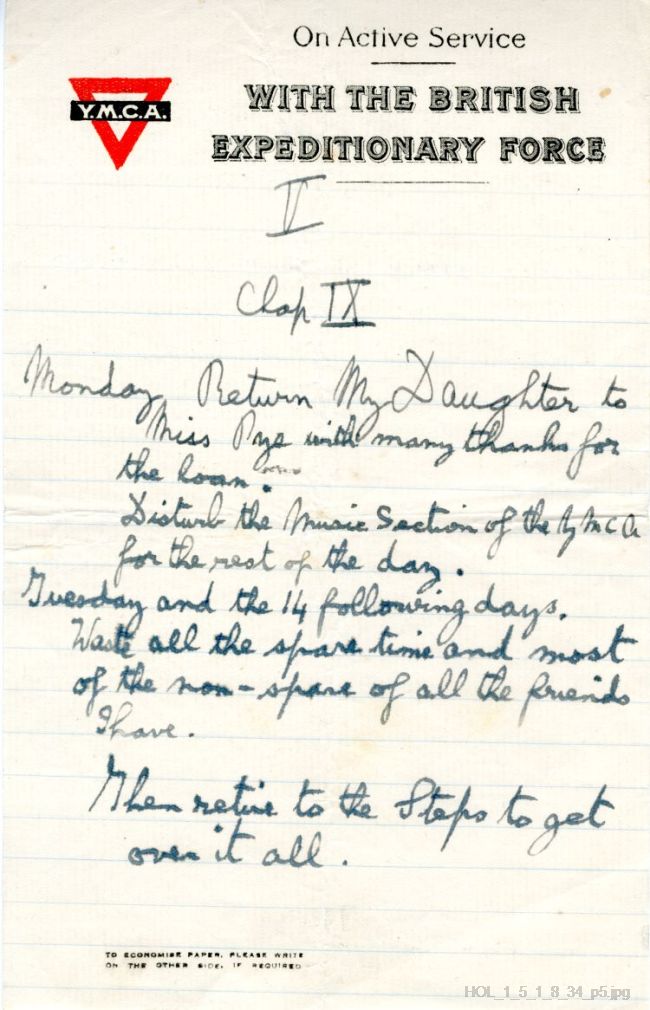 On Active Service
Y.M.C.A.
WITH THE BRITISH
EXPEDITIONARY FORCE
V
Chap IX
Monday Return My Daughter to
Miss Pye with many thanks for
the loan.
Disturb the Music Section of the Y M C A
for the rest of the day.
Tuesday and the 14 following days.
Waste all the spare time and most
of the non-spare of all the friends
I have.
Then retire to the Steps to get
over it all.
TO ECONOMISE PAPER, PLEASE WRITE
ON THE OTHER SIDE, IF REQUIRED
HOL_1_5_1_8_34_p5.jpg